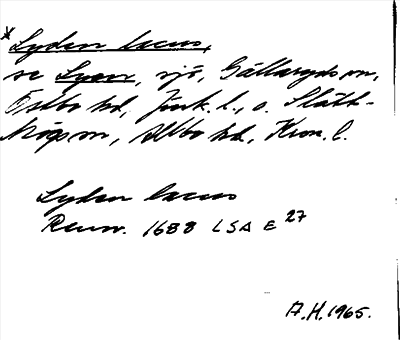 *Lyden lacus,
se Lyen, sjö, Gällaryds sn,
Östbo hd, Jönk. l., o. Slätt-
högs sn, Allbo hd, Kron. l.
Lyden lacus
Renv. 1688 LSA E 27
A.H. 1965.